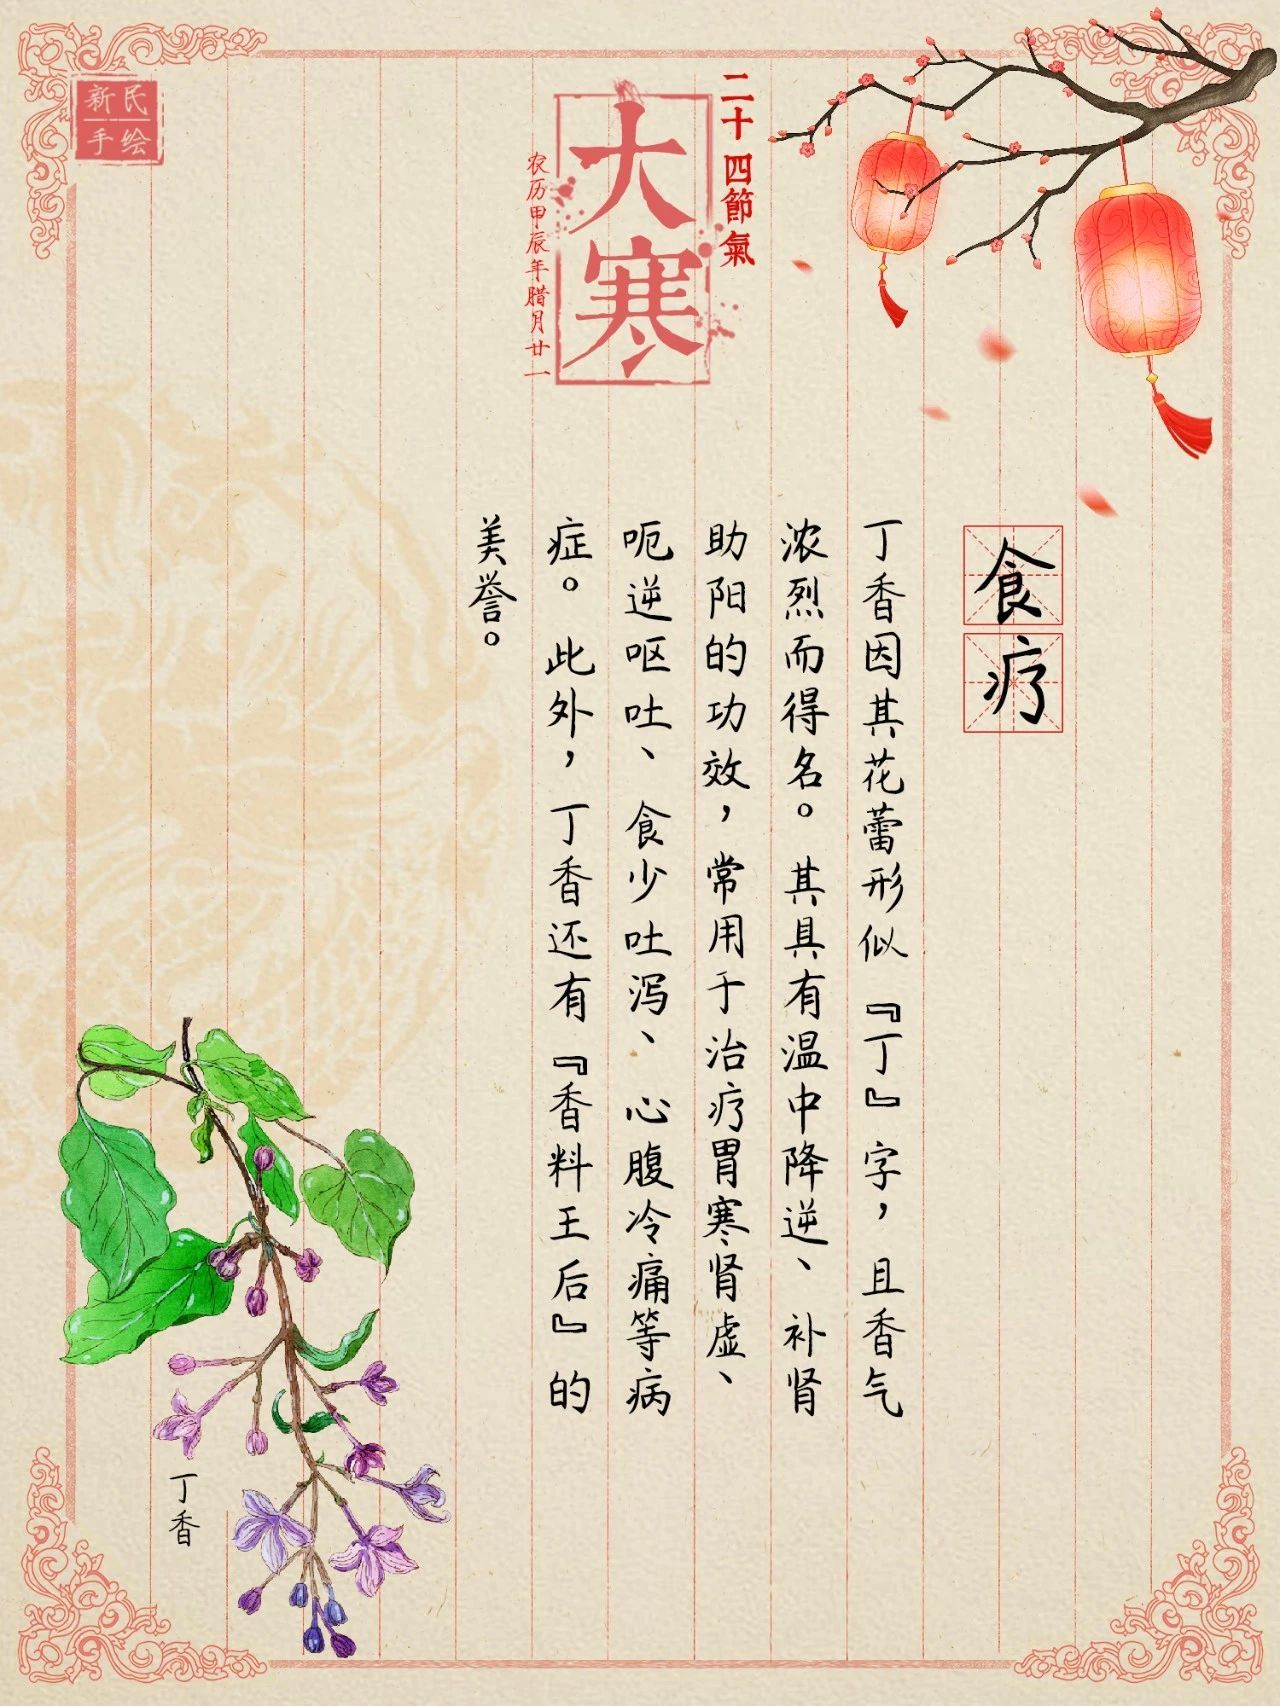 新民
手绘
二十四節氣
大寒
农历甲辰年腊月廿一
食疗
丁香因其花蕾形似『丁』字，且香气
浓烈而得名。其具有温中降逆、补肾
助阳的功效，常用于治疗胃寒肾虚、
呃逆呕吐、食少吐泻、心腹冷痛等病
症。此外，丁香还有『香料王后』的
美誉。
丁香